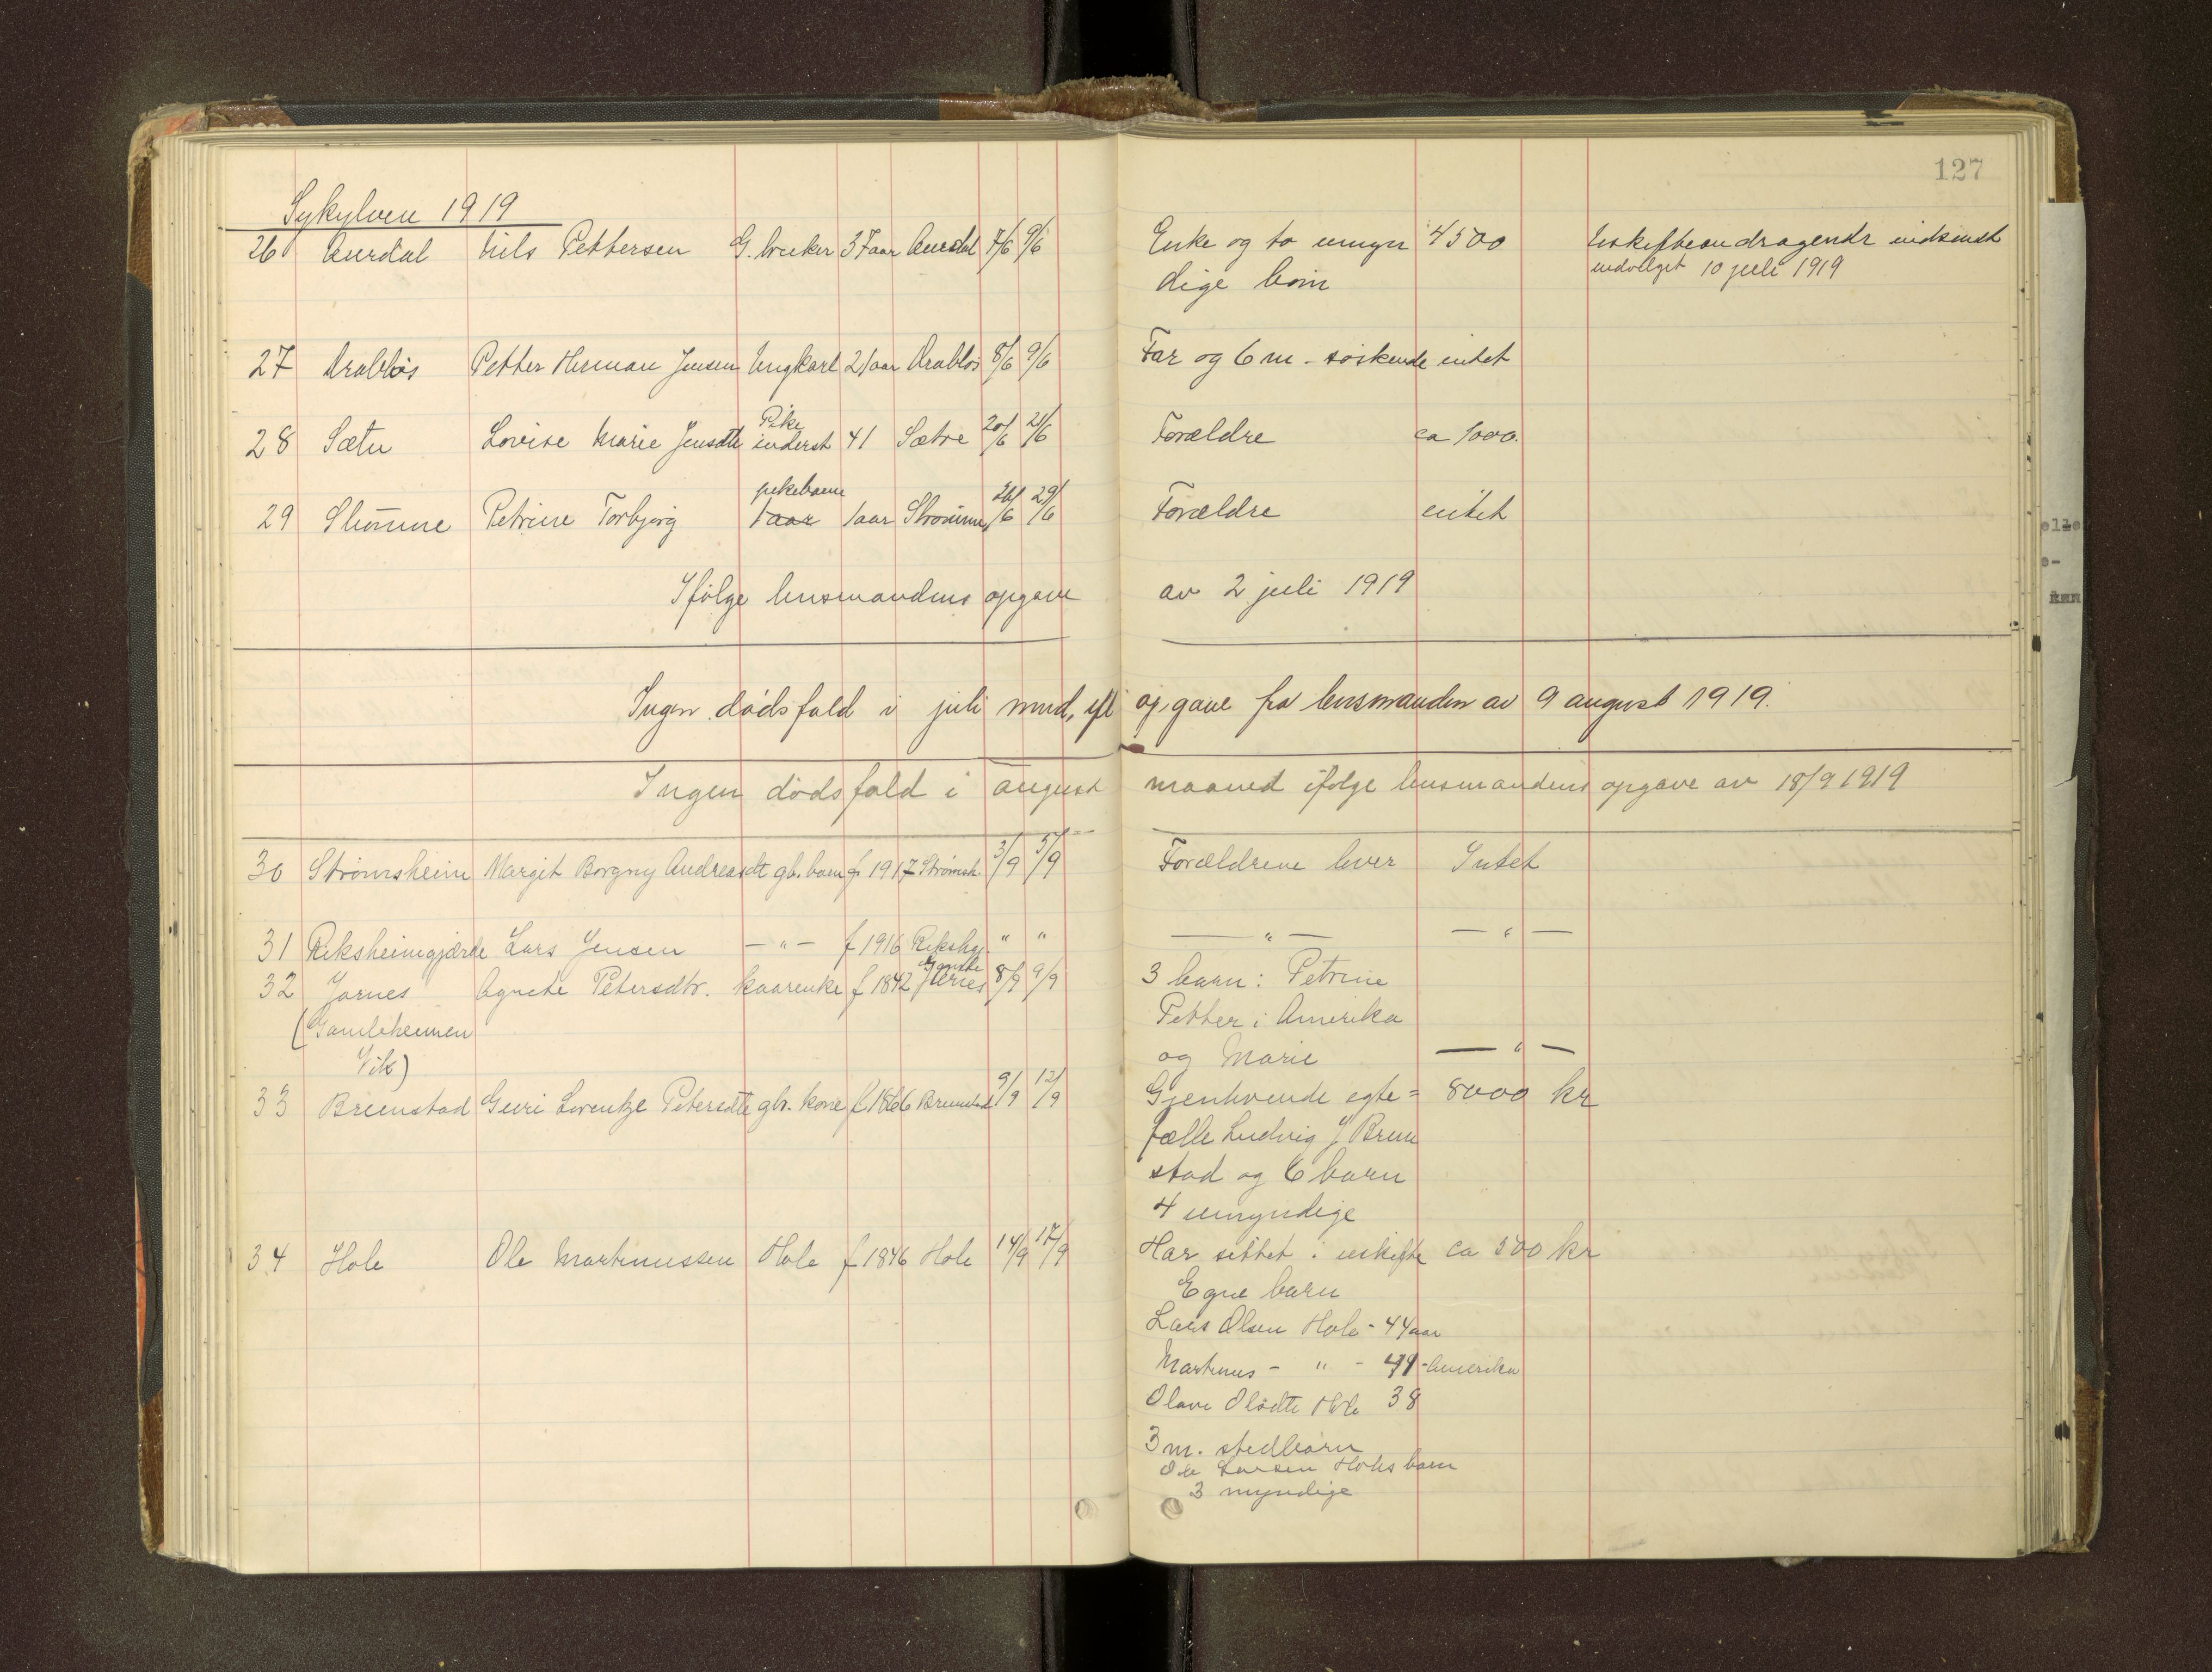 127
Sykylven 1919
26 Aurdal Nils Pettersen G.bruker 37 aar Aurdal 7/6 9/6 Enke og to umyn 4500 Uskifteandragende indsendt
dige børn indvilget 10 juli 1919
27 Drabløs Petter Herman Jensen Ungkarl 21 aar Drabløs 8/6 9/6 Far og 6 m. søskende intet
Pike
28 Sætre Lovise Marie Jensdtr inderst 41 Sætre 20/6 21/6 Forældre ca 1000.
pikebarn
29 Strømme Petrine Torbjørg 1 aar 1 aar Strømme 26/6 29/6 Forældre intet
Ifølge lensmandens opgave av 2 juli 1919
Ingen dødsfald i juli mnd, ifl opgave fra lensmanden av 9 august 1919.
Ingen dødsfald i august maaned ifølge lensmandens opgave av 18/9 1919
30 Strømsheim Margit Borgny Andreasdt gb. barn f 1917 Strømsh. 3/9 5/9 Forældrene lever Intet
31 Riksheimgjærde Lars Jensen — " — f 1916 Rikshg. " " — " — — " —
Gamle
32 Jarnes Agnete Petersdtr. kaarenke f 1842 8/9 9/9 3 barn: Petrine
(Gamleheimen Petter i Amerika
Vik) og Marie — " —
33 Brunstad Guri Lorentze Petersdtr gb. kone f 1866 Brunstad 9/9 12/9 Gjenlevende egte= 8000 kr
fælle Ludvig J Brun
stad og 6 barn
4 umyndige
34 Hole Ole Martinussen Hole f 1846 Hole 14/9 17/9 Har sittet i uskifte ca 500 kr
Egne barn
Lars Olsen Hole - 44 aar
Martinus - " - 41 - Amerika
Olave Olsdtr Hole 38
3 m. stedbarn
Ole Larsen Holes barn
3 myndige
elle
e-